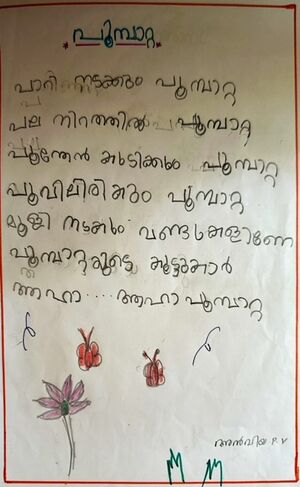 പൂമ്പാറ്റ
പാറി നടക്കും പൂമ്പാറ്റ
പല നിറത്തിൽ പൂമ്പാറ്റ
പൂന്തേൻ കുടിക്കും പൂമ്പാറ്റ
പൂവിലിരിക്കും പൂമ്പാറ്റ
മൂളി നടക്കും വണ്ടുകളാണേ
പൂമ്പാറ്റയുടെ കൂട്ടുകാർ
ആഹാ.... ആഹാ പൂമ്പാറ്റ
അൻവിയ P. V